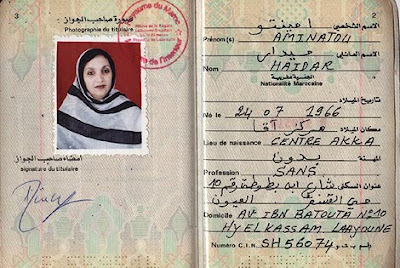 3
صورة صاحب الجواز
Photographie du titulaire
Royaume du Maroc
إمضاء صاحب الجواز
signature du titulaire
2
الاسم الشخصي امينتو
Prénom(s) AMINATOU
الاسم العائلي حيدار
Nom HAIDAR
الجنسية مغربية
Nationalité Marocaine
تاريخ الميلاد
Né le 24 07 1966
مكان الميلاد مركز آقا
Lieu de naissance CENTRE AKKA
المهنة بدون
Profession SANS
عنوان السكنى شارع ابن بطوطة رقم 10
حي القسم العيون
Domicile AV IBN BATOUTA N°10
HY ELKASSAM LAAYOUNE
Numéro C.I.N. SH 56074